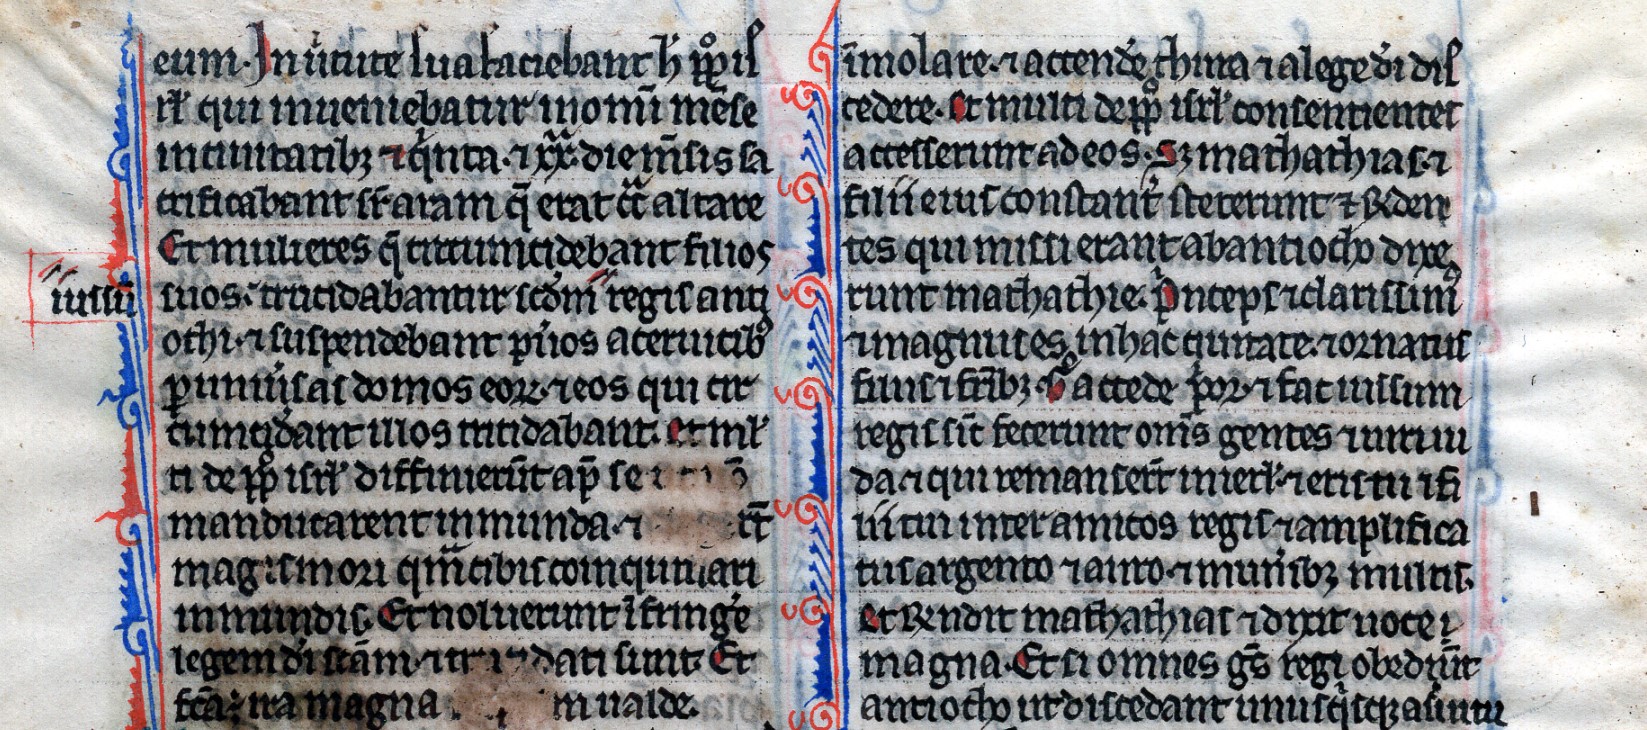 eum. In ũtute sua faciebant h̄ pp̊lo iſ
rł qui inueniebatur in om̄i mēse
in ciuitatibꝫ ⁊ qͥnta. ⁊ xx. die m̄sis sa
crificabant sr̄ aram q̄ erat cͣt altare
Et mulieres q̄ circumcidebant filios
iussū
suos. trucidabantur scdm̄ regis anti
ochi. ⁊ suspendebant pũos a ceruicibꝰ
ꝑ uniũsas domos eoꝝ. ⁊ eos qui cir
cumcid̓ant illos trucidabant. Et ml̄
ti de pp̊ isrł diffinierūt ap̄ se
manducarent inmunda. ⁊ ct̄
magis mori qͣm cibis coinquinari
inmundis. Et noluerunt īfring̓e
legem di scām. ⁊ trucidati sunt. Et
fcā ÷ ira magna m ualde.
īmolare. ⁊ accende᷑ thura ⁊ a lege di dis
cedere. Et multi de pp̊ isrł consentientes
accesserunt ad eos. Sꝫ mathathias. ⁊
filii eius constant᷑ steterunt ⁊ R̄den
tes qui missi erant ab antiocho dixe
runt mathathie. Pͥnceps ⁊ clarissimꝰ
⁊ magnus es in hac ciuitate. ⁊ ornatus
filiis ⁊ fr̄ibꝫ. g̊ accede pͥor. ⁊ fac iussum
regis sic̄ fecerunt om̄s gentes ⁊ uiri iu
da. ⁊ qui remanser̄t in ierł̄. ⁊ eris tu ⁊ fi
lii tui inter amicos regis ⁊ amplifica
tus argento ⁊ auro. ⁊ mun̓ibꝫ multis.
Et R̄ndit mathathias ⁊ dixit uoce
magna. Et si omnes gn̄s regi obediūt
antiocho ut discedant unusqͥsqꝫ a s̓uitu